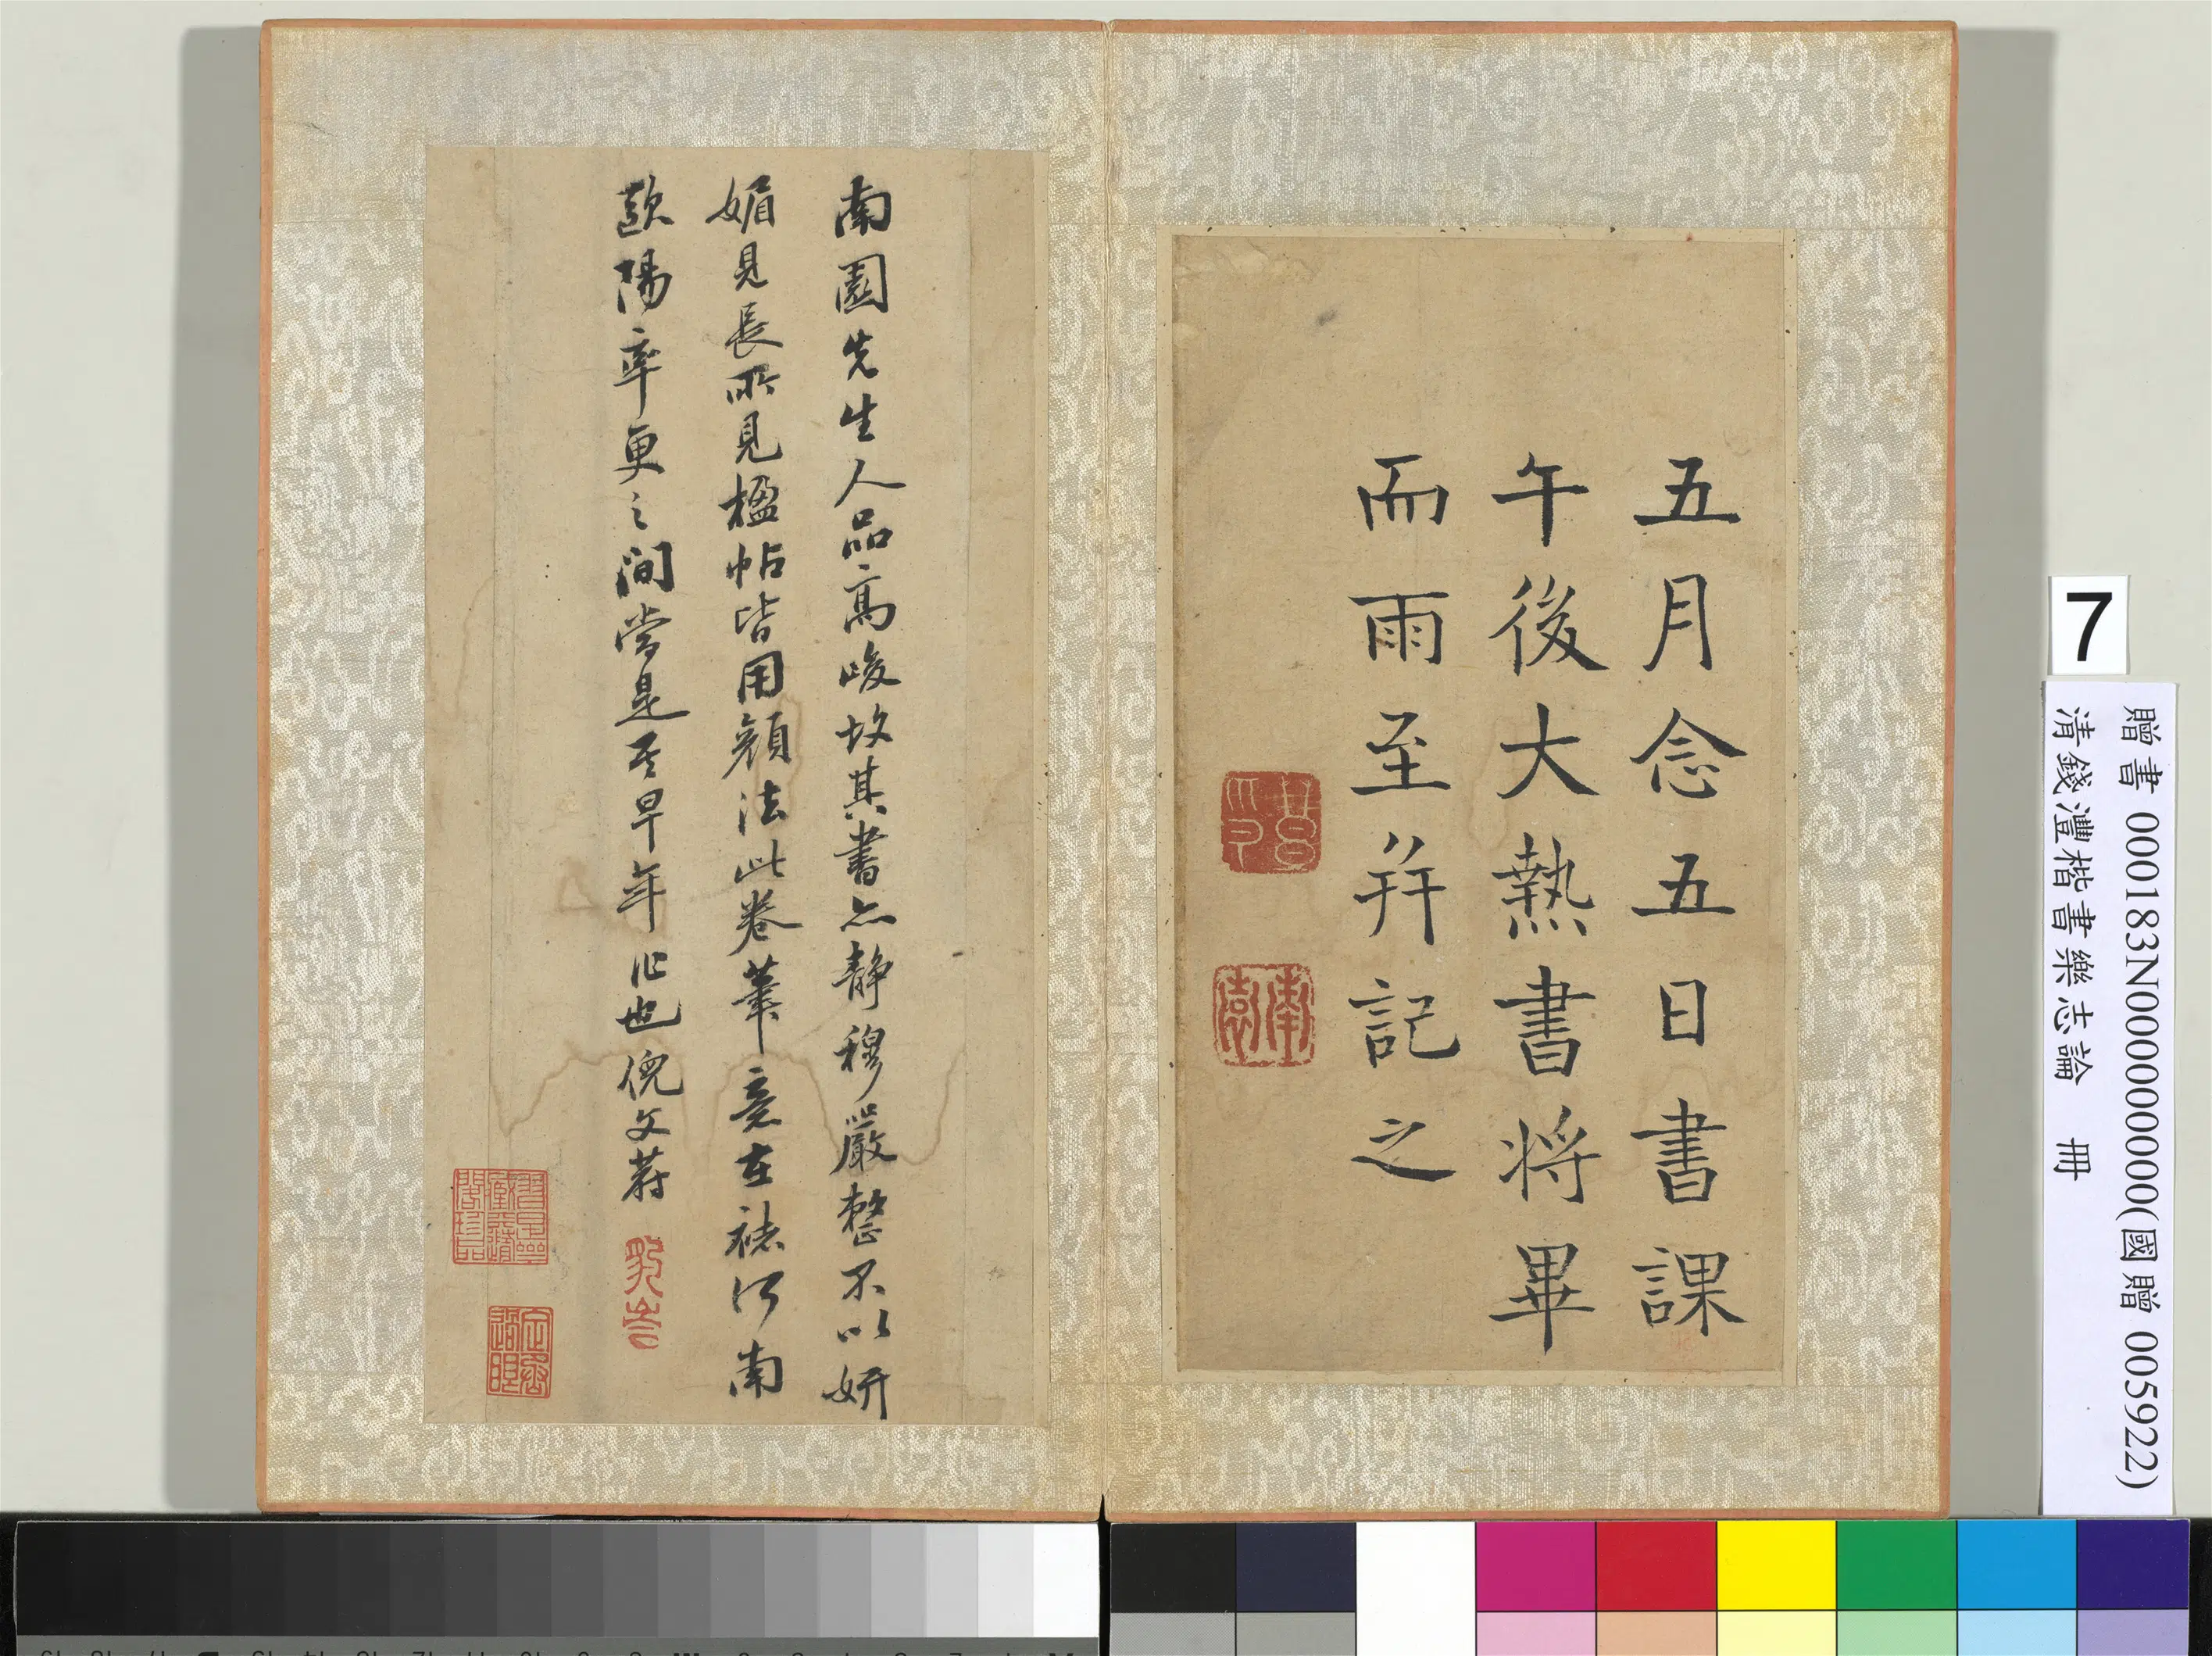 五月念五日書課
午後大熱書將畢
而雨至并記之
南園
南園先生人品高峻故其書亦静穆嚴整不以妍
媚見長所見楹帖皆用顔法此卷筆意在褚河南
歐陽率更之間當是其早年作也倪文蔚
豹岑
7
贈書 000183N000000000(國贈 005922)
清錢灃楷書樂志論 冊